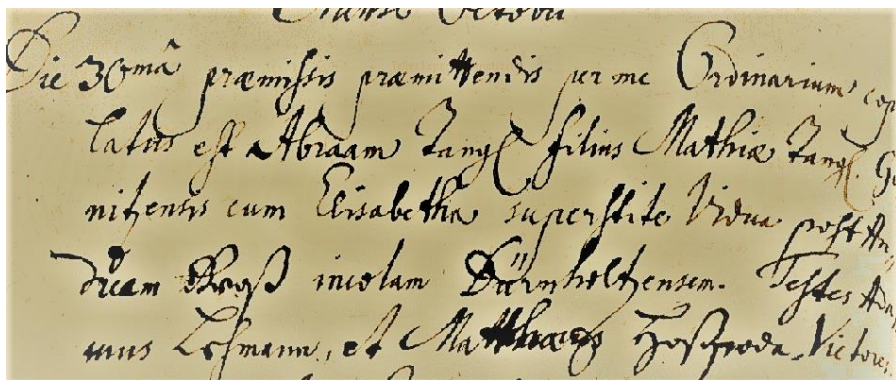 Die 30mâ præmissis præmittendis per me Ordinarium cop
latus est Abraam Tangl filius Mathiæ Tangl. G
nitzensis cum Elisabetha superstite Vidua post An
dream incolam Dürnholtzensem. Testes
mus Lehmann, et Matthæus Hospoda Victor